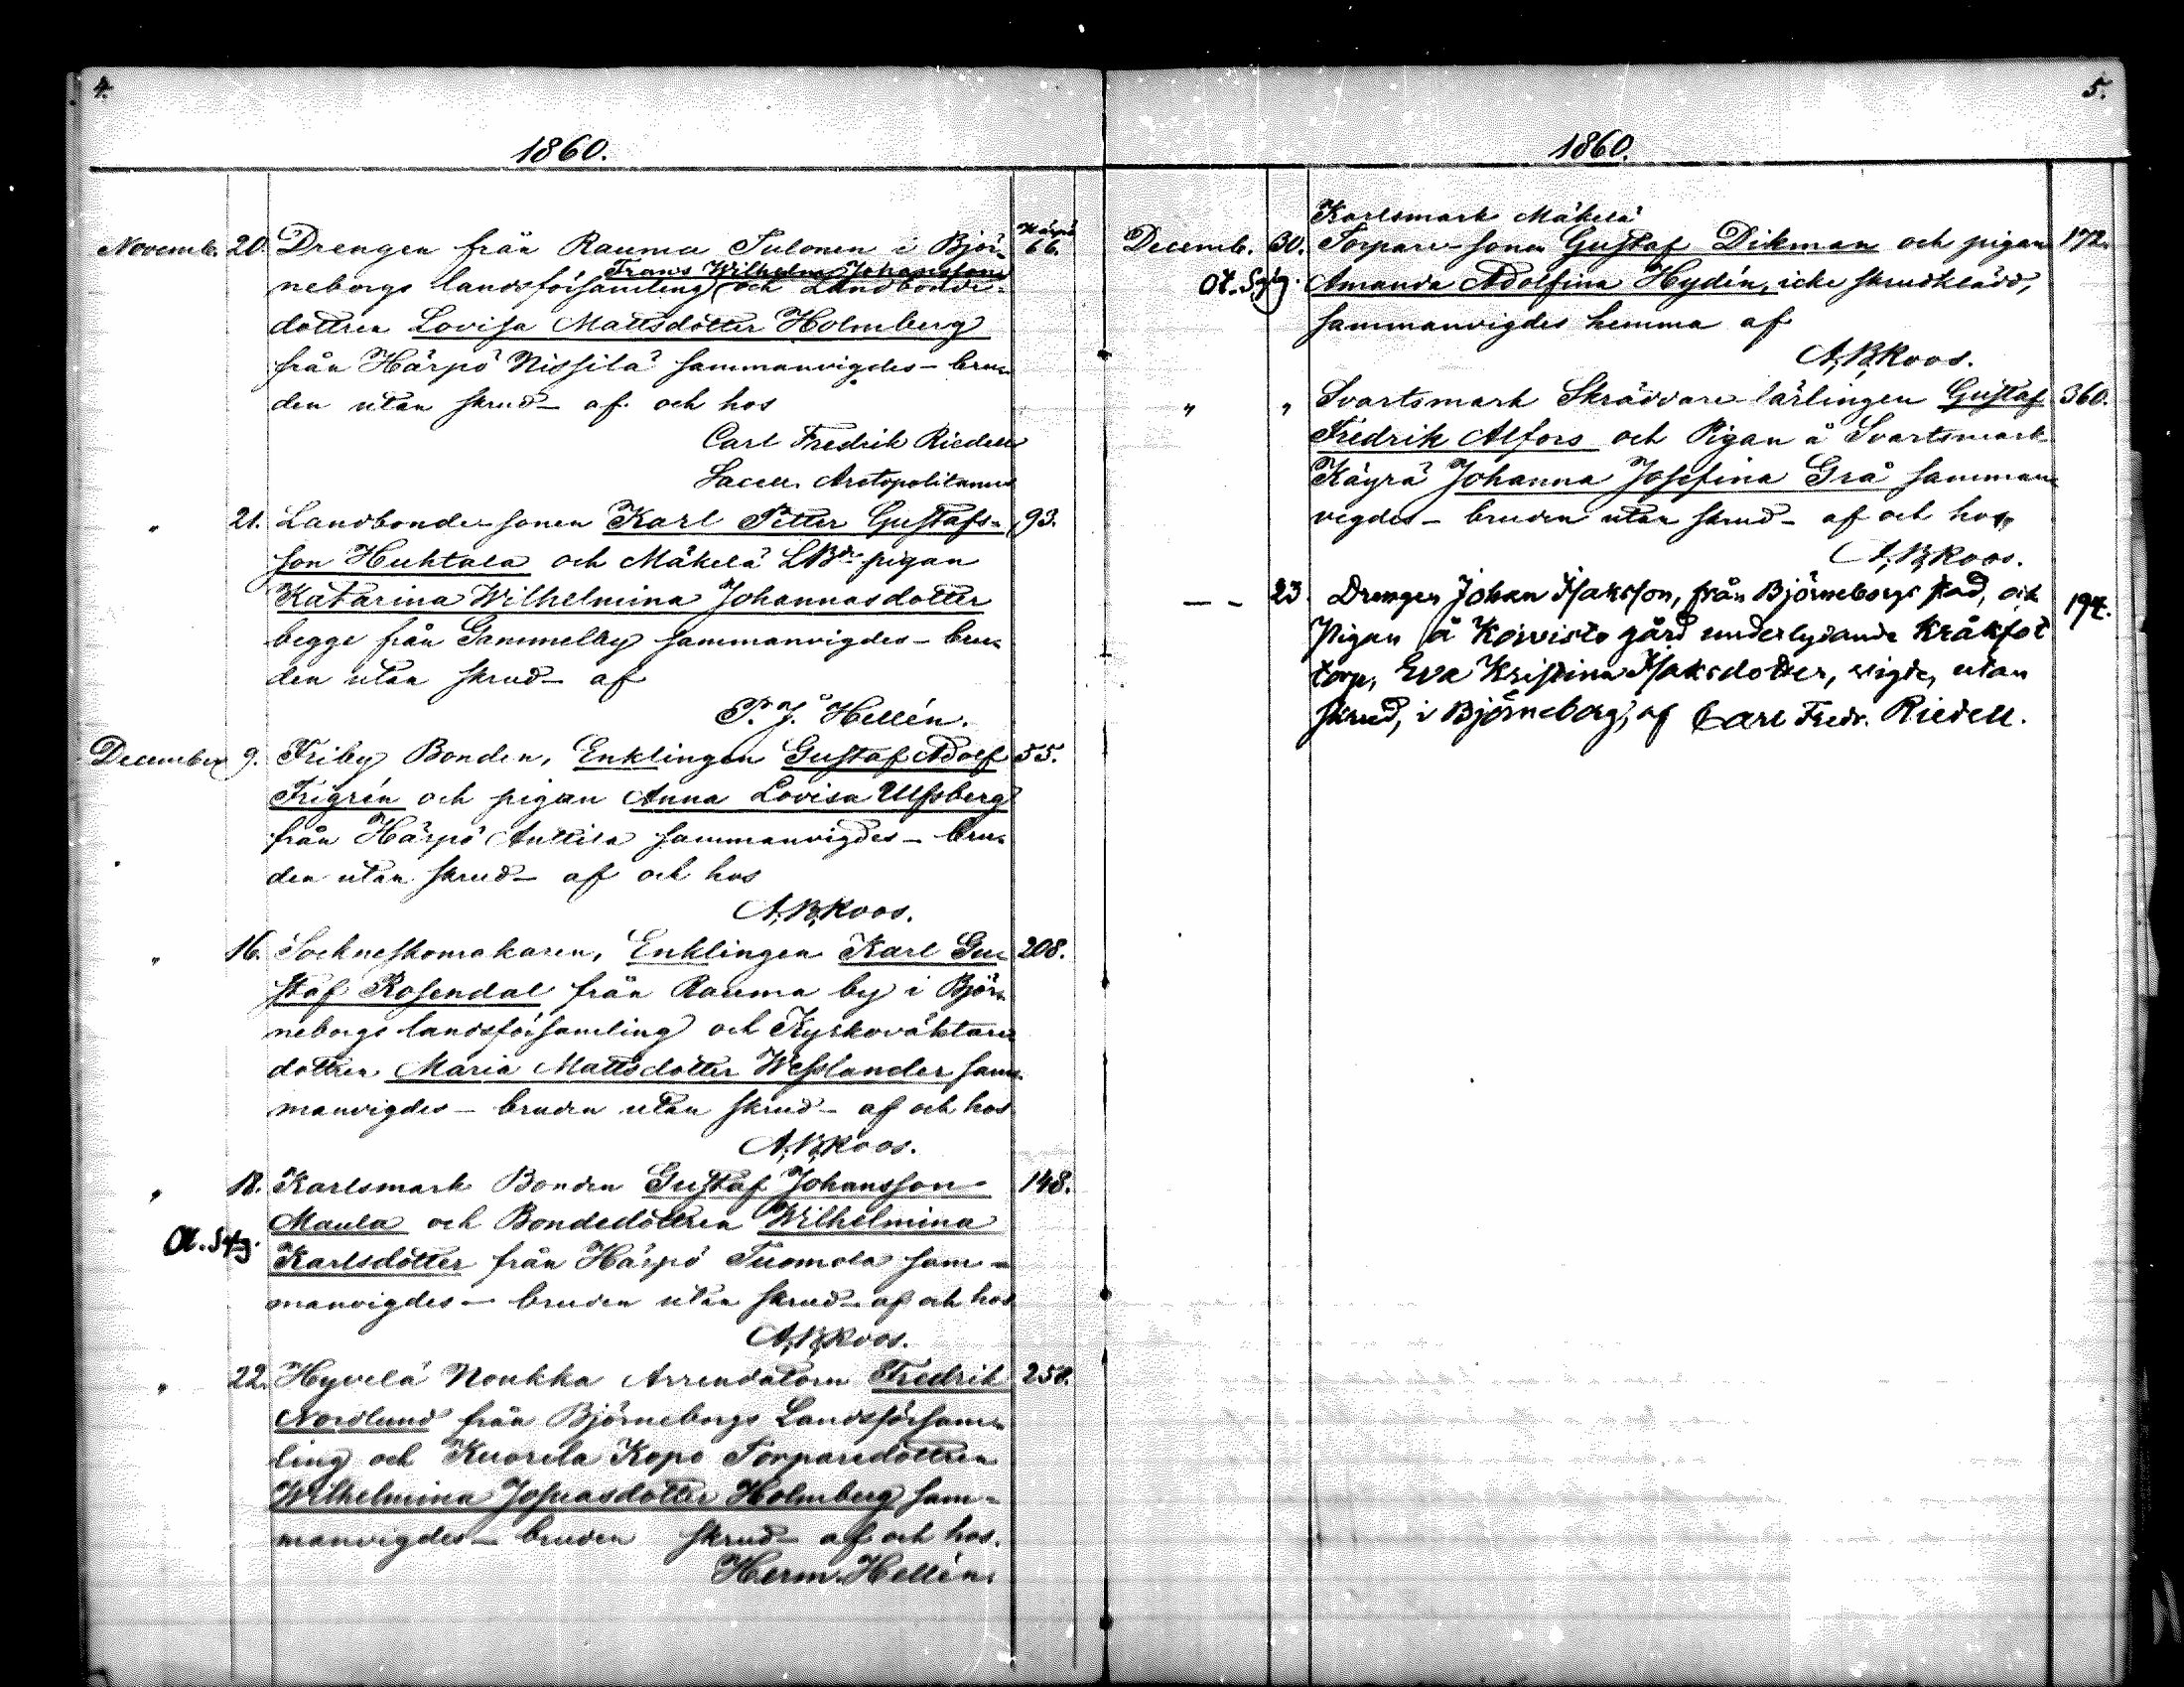 4.
1860.
Novemb. 20. Drengen från Rauma Tulonen i Björ- Härpö 66.
Frans Wilhelm Johansson
neborgs landsförsamling och Landbonde-
dottren Lovisa Mattsdotter Holmberg
från Härpö Nissilä sammanvigdes – bru-
den utan skrud – af och hos
Carl Fredrik Riedell
Sacell. Arctopolitanus
" 21. Landbonde-sonen Karl Petter Gustafs- 93.
son Huhtala och Mäkelä LBde pigan
Katarina Wilhelmina Johannasdotter
begge från Gammelby sammanvigdes – bru-
den utan skrud – af
P. J. Hellén.
December 9. Friby Bonden, Enklingen Gustaf Adolf 55.
Frigrén och pigan Anna Lovisa Ulfsberg
från Härpö Anttila sammanvigdes – bru-
den utan skrud – af och hos
A. B. Roos.
" 16. Sockneskomakaren, Enklingen Karl Gu- 208.
staf Rosendal från Rauma by i Björ-
neborgs landsförsamling och Kyrkoväktare
dottren Maria Mattsdotter Wesslander sam-
manvigdes – bruden utan skrud – af och hos
A. B. Roos.
" 18. Karlsmark Bonden Gustaf Johansson 148.
Maula och Bondedottren Wilhelmina
Karlsdotter från Härpö Tuomola sam-
manvigdes – bruden utan skrud – af och hos
A. B. Roos.
" 22. Hyvelä Noukka Arrendatorn Fredrik 258.
Nordlund från Björneborgs Landsförsam-
ling och Kuorila Kopo Torparedottren
Wilhelmina Josuasdotter Holmberg sam-
manvigdes – bruden skrud – af och hos.
Herm. Hellén.
5.
1860.
Karlsmark Mäkelä
Decemb. 30. Torpare-sonen Gustaf Dikman och pigan 172.
Amanda Adolfina Hydén, icke skrudklädd,
sammanvigdes hemma af
A. B. Roos.
" " Svartsmark Skräddare-lärlingen Gustaf 360.
Fredrik Alfors och Pigan å Svartsmark
Käyrä Johanna Josefina Grå samman-
vigdes – bruden utan skrud – af och hos
A. B. Roos.
– – 23. Drengen Johan Isaksson, från Björneborgs stad, och 194.
Pigan å Koivisto gård underlydande Kråkfot
torp, Eva Kristina Isaksdotter, vigde, utan
skrud, i Björneborg, af Carl Fredr. Riedell.